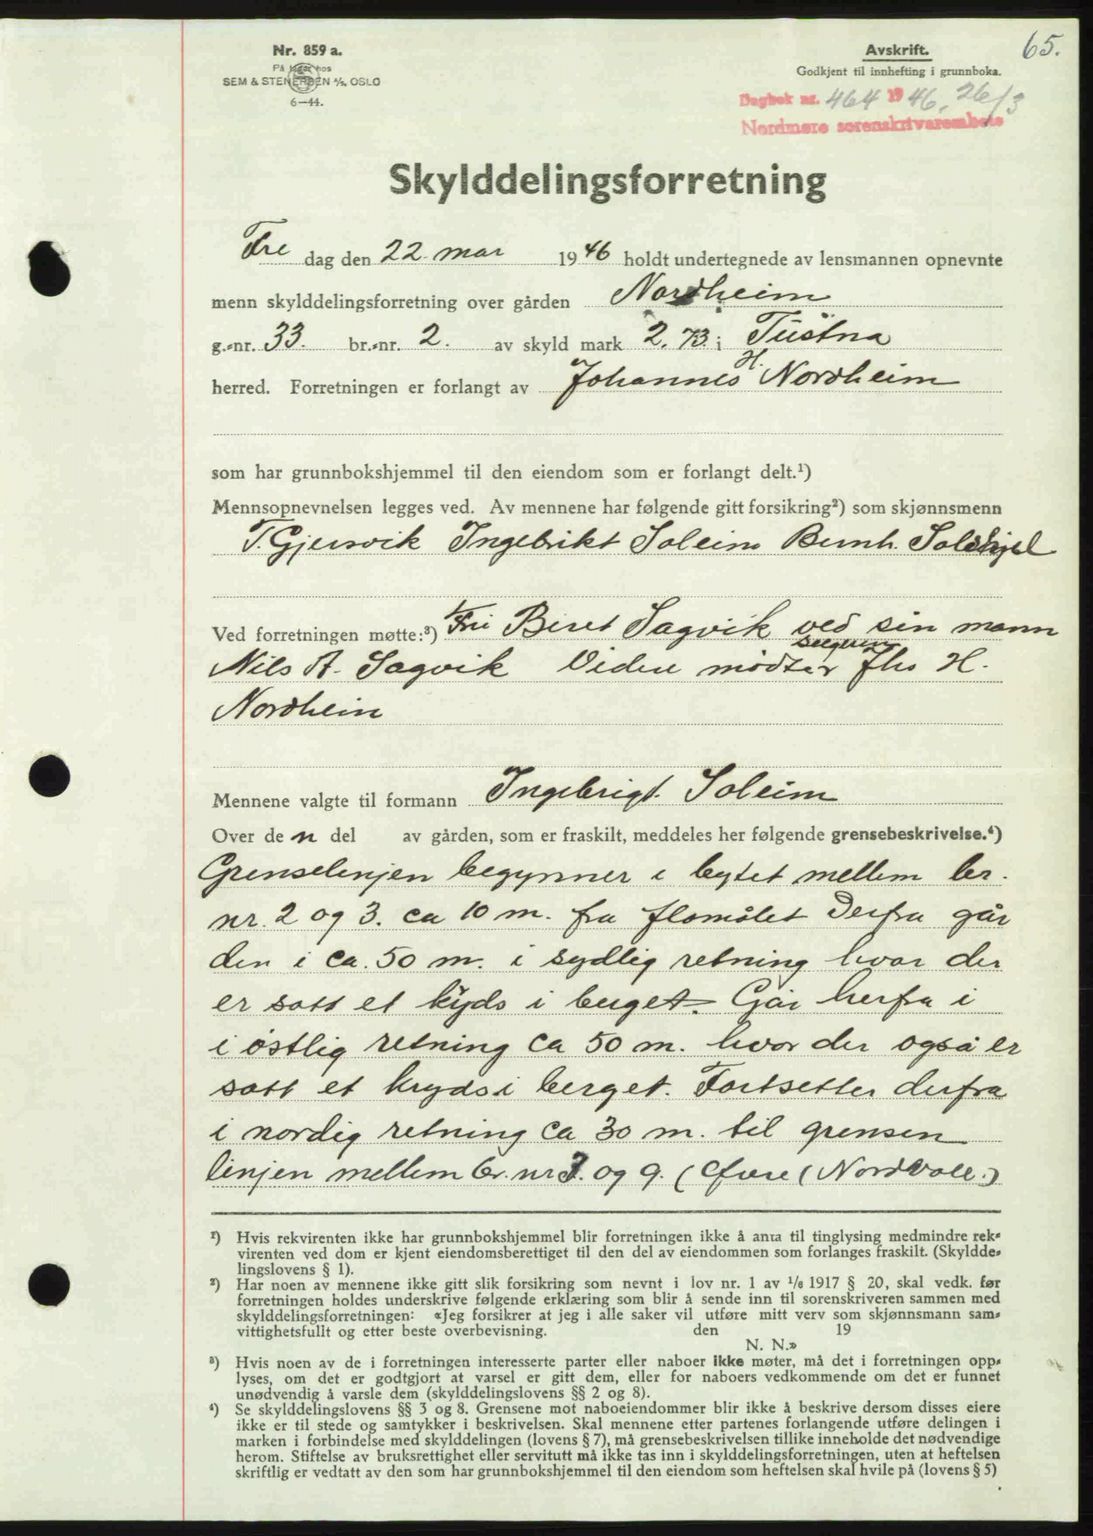 Nr. 859 a.
På lager hos
SEM & STENERSEN A/S, OSLO
6—44.
Avskrift.
Godkjent til innhefting i grunnboka.
65.
Dagbok nr. 464 1946. 26/3
Nordmøre sorenskrivarembete
Skylddelingsforretning
Fre dag den 22 mar 1946 holdt undertegnede av lensmannen opnevnte
menn skylddelingsforretning over gården Nordheim
g.-nr. 33. br.-nr. 2. av skyld mark 2.73. i Tustna
herred. Forretningen er forlangt av Johannes H. Nordheim
som har grunnbokshjemmel til den eiendom som er forlangt delt.¹)
Mennsopnevnelsen legges ved. Av mennene har følgende gitt forsikring²) som skjønnsmenn
T. Gjersvik Ingebrikt Soleim Bernh. Solskjel
Ved forretningen møtte:³) Fru Beret Sagvik ved sin mann
Nils A. Sagvik Videre møдter Jhs H.
Nordheim
Mennene valgte til formann Ingebrigt Soleim
Over de n del av gården, som er fraskilt, meddeles her følgende grensebeskrivelse.⁴)
Grenselinjen begynner i bytet mellem br.
nr. 2 og 3. ca 10 m. fra flomålet Derfra går
den i ca. 50 m. i sydlig retning hvor der
er satt et kryds i berget. Går herfra i
i østlig retning ca 50 m. hvor der også er
satt et kryds i berget. Fortsetter derfra
i nordig retning ca 30 m. til grensen
linjen mellem br. nr 3. og 9. ( Øvre ( Nordvoll.)
¹) Hvis rekvirenten ikke har grunnbokshjemmel blir forretningen ikke å anta til tinglysing medmindre rek-
virenten ved dom er kjent eiendomsberettiget til den del av eiendommen som forlanges fraskilt. (Skyldde-
lingslovens § 1).
²) Har noen av mennene ikke gitt slik forsikring som nevnt i lov nr. 1 av 1/6 1917 § 20, skal vedk. før
forretningen holdes underskrive følgende erklæring som blir å sende inn til sorenskriveren sammen med
skylddelingsforretningen: «Jeg forsikrer at jeg i alle saker vil utføre mitt verv som skjønnsmann sam-
vittighetsfullt og etter beste overbevisning. den 19
N. N.»
³) Hvis noen av de i forretningen interesserte parter eller naboer ikke møter, må det i forretningen opp-
lyses, om det er godtgjort at varsel er gitt dem, eller for naboers vedkommende om det er funnet
unødvendig å varsle dem (skylddelingslovens §§ 2 og 8).
⁴) Se skylddelingslovens §§ 3 og 8. Grensene mot naboeiendommer blir ikke å beskrive dersom disses eiere
ikke er til stede og samtykker i beskrivelsen. Skal mennene etter partenes forlangende utføre delingen i
marken i forbindelse med skylddelingen (lovens § 7), må grensebeskrivelsen tillike inneholde det nødvendige
herom. Stiftelse av bruksrettighet eller servitutt må ikke tas inn i skylddelingsforretningen, uten at heftelsen
skriftlig er vedtatt av den som har grunnbokshjemmel til den eiendom som heftelsen skal hvile på (lovens § 5)